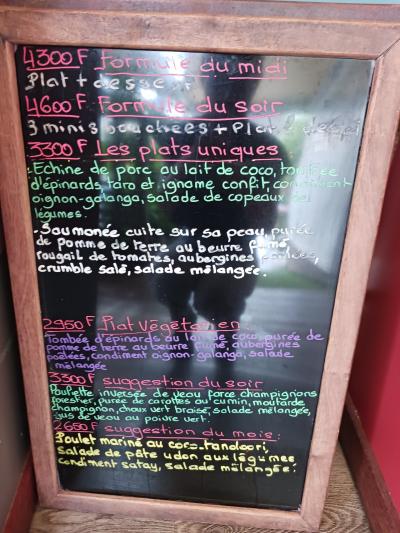 4300F Formule du midi
Plat + desse
4600F Formule du soir
3 minis bouchées + Plat
3300F Les plats uniques
- Echine de porc au lait de coco, tombée
d'épinards, taro et igname confit, condiment
oignon-galanga, salade de copeaux de
légumes.
- Saumonée cuite sur sa peau, purée
de pomme de terre au beurre fumé,
rougail de tomates, aubergines poêlées,
crumble salé, salade mélangée.
2950F Plat Végétarien:
Tombée d'épinards au lait de coco, purée de
pomme de terre au beurre fumé, aubergines
poêlées, condiment oignon-galanga, salade
mélangée
3300F suggestion du soir
Paupiette inversée de veau farce champignions
forestier, purée de carottes au cumin, moutarde
champignon, choux vert braisé, salade mélangée,
jus de veau au poivre vert.
2650F suggestion du mois:
Poulet mariné au coco-tandoori,
salade de pâte udon aux légumes
condiment satay, salade mélangée.